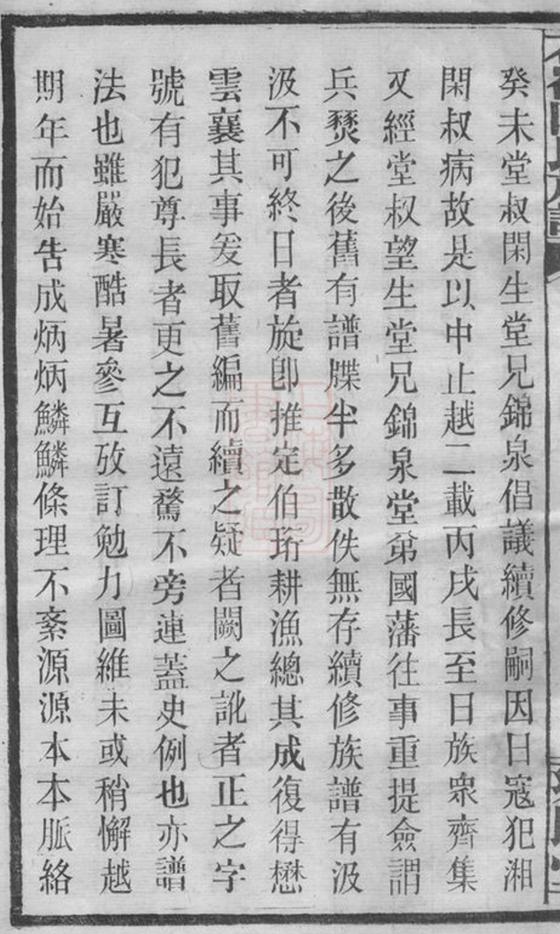 癸未堂叔閑生堂兄錦泉倡議續修嗣因日寇犯湘
閑叔病故是以中止越二載丙戌長至日族衆齊集
又經堂叔望生堂兄錦泉堂弟國藩往事重提僉謂
兵燹之後舊有譜牒半多散佚無存續修族譜有汲
汲不可終日者旋卽推定伯珩耕漁總其成復得懋
雲襄其事爰取舊編而續之疑者闕之訛者正之字
號有犯尊長者更之不遠騖不旁連蓋史例也亦譜
法也雖嚴寒酷暑參互攷訂勉力圖維未或稍懈越
期年而始告成炳炳鱗鱗條理不紊源源本本脈絡